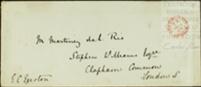 M Martinez del Rio
Stephen Williams Esqre
Clapham Common
London S
E C Egerton